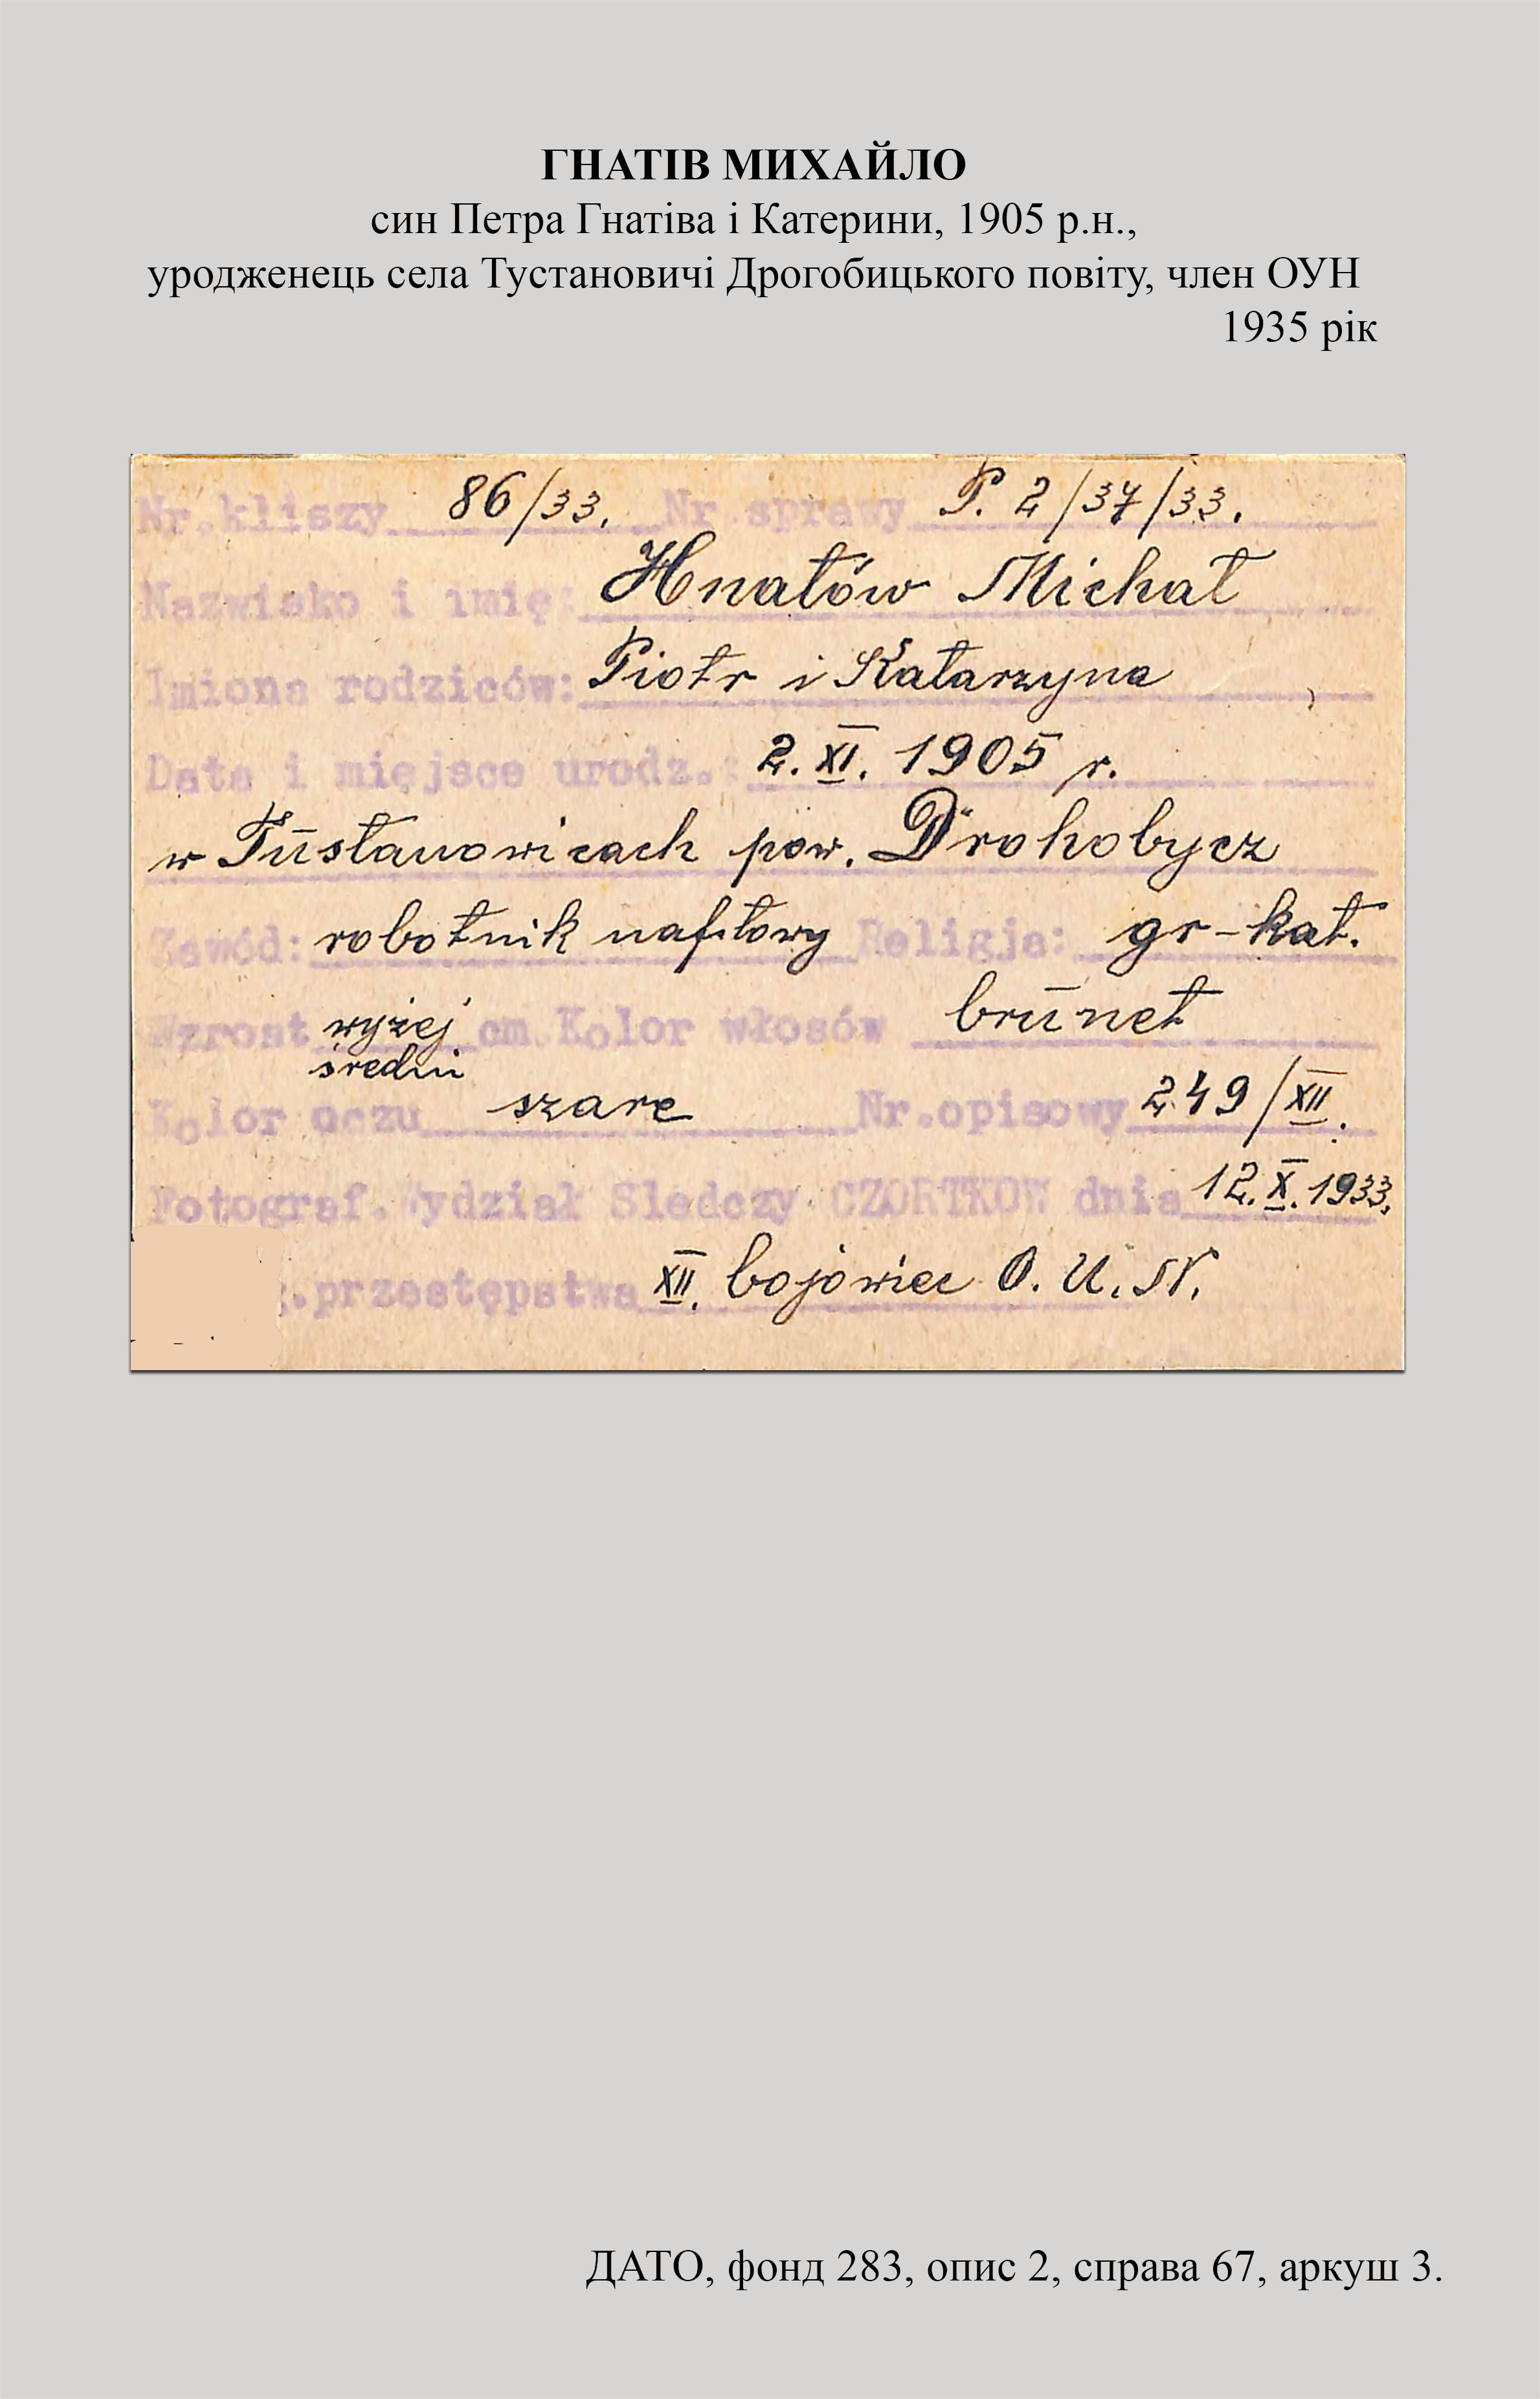 ГНАТІВ МИХАЙЛО
син Петра Гнатіва і Катерини, 1905 р.н.,
уродженець села Тустановичі Дрогобицького повіту, член ОУН
1935 рік
Nr.kliszy 86/33. Nr sprawy P. 2/37/33.
Nazwisko i imię: Hnatów Michał
Imiona rodziców: Piotr i Katarzyna
Data i miejsce urodz.: 2. XI. 1905 r.
w Tustanowicach pow. Drohobycz
Zawód: robotnik naftowy Religja: gr-kat.
Wzrost wyżej średni cm. Kolor włosów brunet
Kolor oczu szare Nr.opisowy 249/XII.
Fotograf. Wydział Sledczy CZORTKOW dnia 12.X.1933.
g.przestępstwa XII. bojowiec O.U.N.
ДАТО, фонд 283, опис 2, справа 67, аркуш 3.